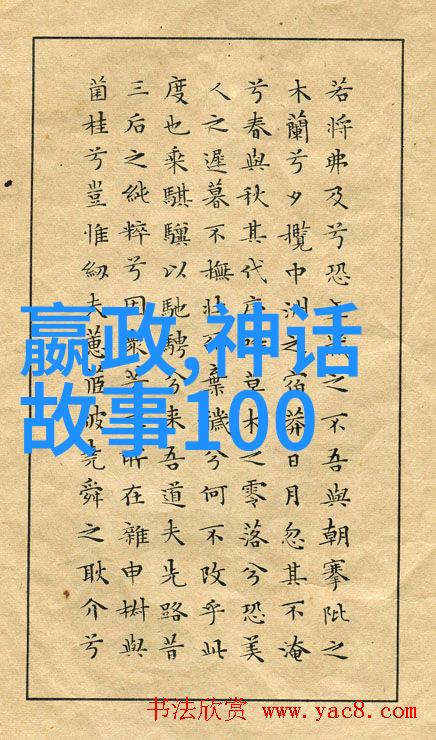 若將弗及兮恐年歲之不吾與朝搴阰之
木蘭兮夕攬中洲之宿莽日月忽其不淹
兮春與秋其代序惟草木之零落兮恐美
人之遲暮不撫壯而棄穢兮何不改乎此
度也乘騏驥以馳騁兮来吾道夫先路昔
三后之純粹兮固眾芳之所在雜申椒與
菌桂兮豈惟紉夫蕙茝彼堯舜之耿介兮
嬴政,神话
故事100
书法欣赏 www.yac8.com